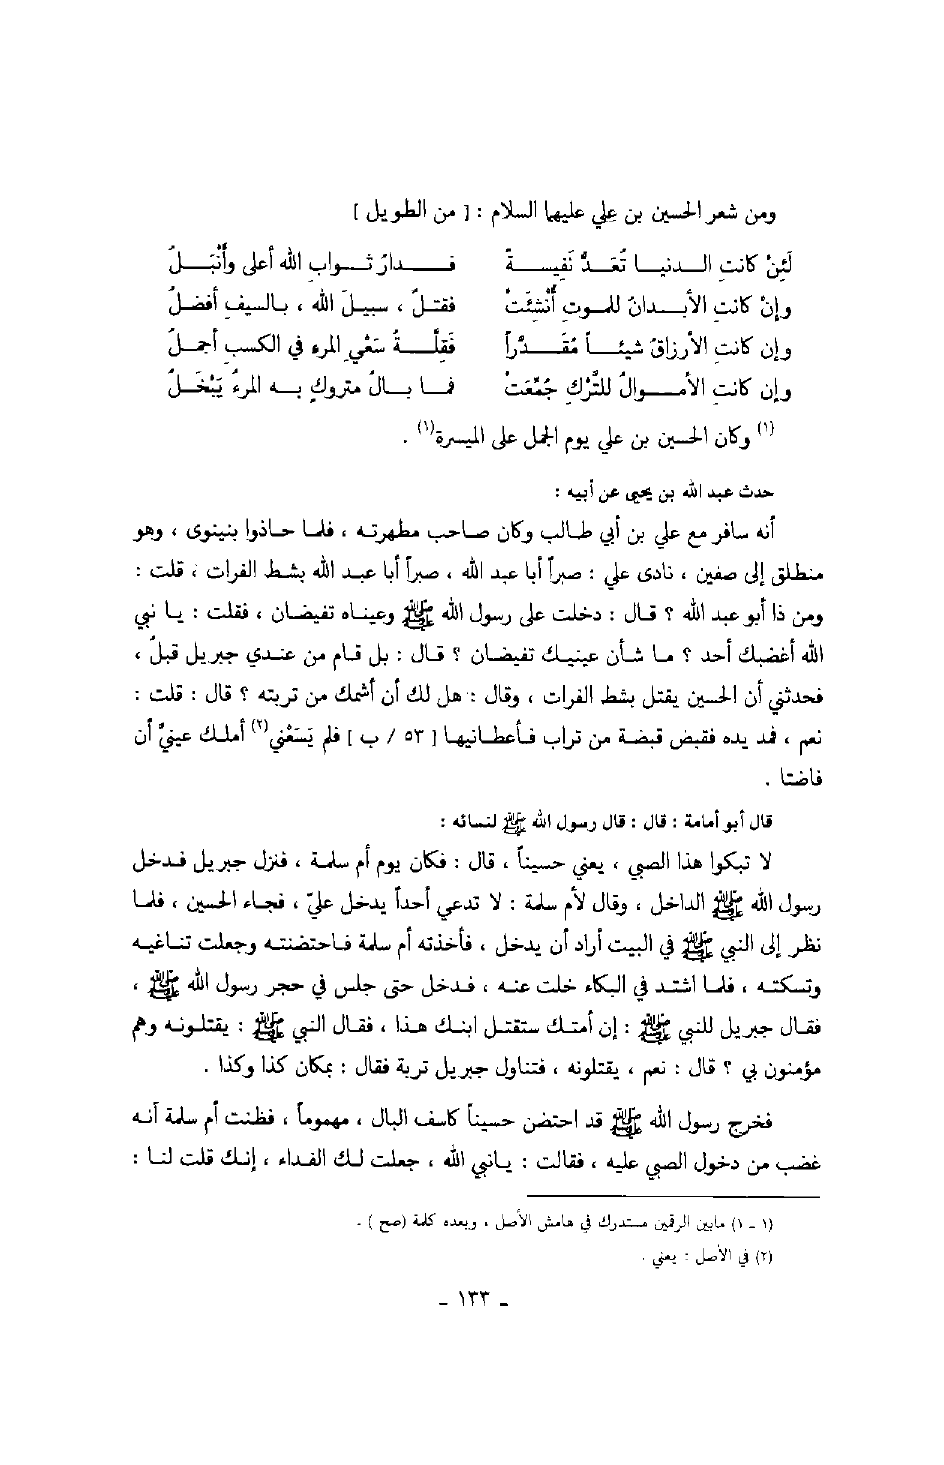 ومن شعر الحسين بن علي عليهما السلام : [ من الطويل ]
لَئِنْ كانتِ الدنيا تُعَدُّ نَفِيسةً فدارُ ثوابِ الله أعلى وأَنْبَلُ
وإنْ كانتِ الأبدانُ للموتِ أُنْشِئَتْ فقتلٌ ، سبيلَ الله ، بالسيفِ أفضلُ
وإن كانتِ الأرزاقُ شيئاً مُقَدَّراً فَقِلَّةُ سَعْيِ المرءِ في الكسبِ أجملُ
وإن كانتِ الأموالُ للتَّركِ جُمِّعَتْ فما بالُ متروكٍ به المرءُ يَبْخَلُ
(١) وكان الحسين بن علي يوم الجمل على الميسرة(١) .
حدث عبد الله بن يحيى عن أبيه :
أنه سافر مع علي بن أبي طالب وكان صاحب مطهرته ، فلما حاذوا بنينوى ، وهو
منطلق إلى صفين ، نادى علي : صبراً أبا عبد الله ، صبراً أبا عبد الله بشط الفرات ، قلت :
ومن ذا أبو عبد الله ؟ قال : دخلت على رسول الله ﷺ وعيناه تفيضان ، فقلت : يا نبي
الله أغضبك أحد ؟ ما شأن عينيك تفيضان ؟ قال : بل قام من عندي جبريل قبلُ ،
فحدثني أن الحسين يقتل بشط الفرات ، وقال : هل لك أن أشمك من تربته ؟ قال : قلت :
نعم ، فمد يده فقبض قبضة من تراب فأعطانيها [ ٥٣ / ب ] فلم يَسَعْني(٢) أملك عينيَّ أن
فاضتا .
قال أبو أمامة : قال : قال رسول الله ﷺ لنسائه :
لا تبكوا هذا الصبي ، يعني حسيناً ، قال : فكان يوم أم سلمة ، فنزل جبريل فدخل
رسول الله ﷺ الداخل ، وقال لأم سلمة : لا تدعي أحداً يدخل عليّ ، فجاء الحسين ، فلما
نظر إلى النبي ﷺ في البيت أراد أن يدخل ، فأخذته أم سلمة فاحتضنته وجعلت تناغيه
وتسكته ، فلما اشتد في البكاء خلت عنه ، فدخل حتى جلس في حجر رسول الله ﷺ ،
فقال جبريل للنبي ﷺ : إن أمتك ستقتل ابنك هذا ، فقال النبي ﷺ : يقتلونه وهم
مؤمنون بي ؟ قال : نعم ، يقتلونه ، فتناول جبريل تربة فقال : بمكان كذا وكذا .
فخرج رسول الله ﷺ قد احتضن حسيناً كاسف البال ، مهموماً ، فظنت أم سلمة أنه
غضب من دخول الصبي عليه ، فقالت : يانبي الله ، جعلت لك الفداء ، إنك قلت لنا :
(١ - ١) مابين الرقمين مستدرك في هامش الأصل ، وبعده كلمة (صح ) .
(٢) في الأصل : يعني .
- ١٣٣ -